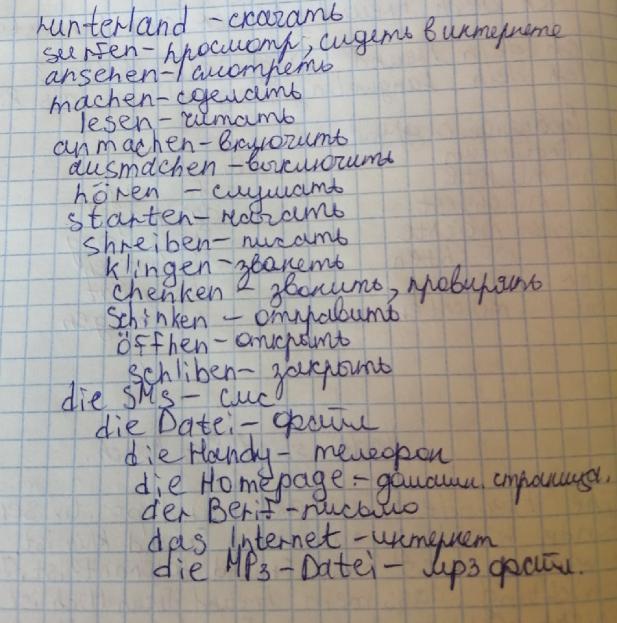 runterland - скачать
surfen - просмотр, сидеть в интернете
ansehen - смотреть
machen - сделать
lesen - читать
anmachen - включить
ausmachen - выключить
hören - слушать
starten - начать
shreiben - писать
klingen - званеть
chenken - звонить, провирять
schinken - отправить
öffhen - открыть
schliben - закрыть
die SMS - смс
die Datei - файл
die Handy - телефон
die Homepage - домашн. страница.
der Berif - письмо
das Internet - интернет
die MP3 - Datei - мр3 файл.